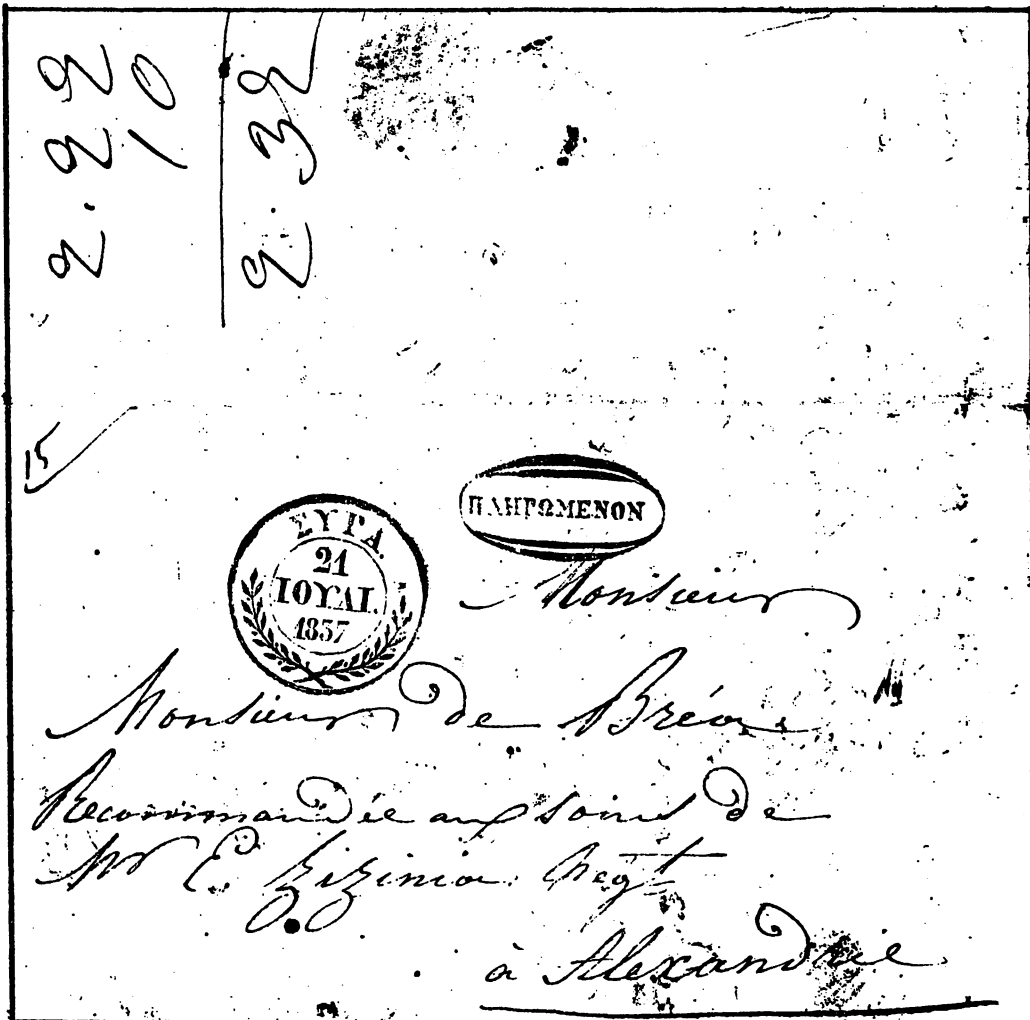 2.22
10
2.32
15
ΠΛΗΡΩΜΕΝΟΝ
ΣΥΡΑ.
21
ΙΟΥΛΙ.
1837
Monsieur
Monsieur de
Recommandée aux soins de
Mr E. Zizinia Negt
à Alexandrie